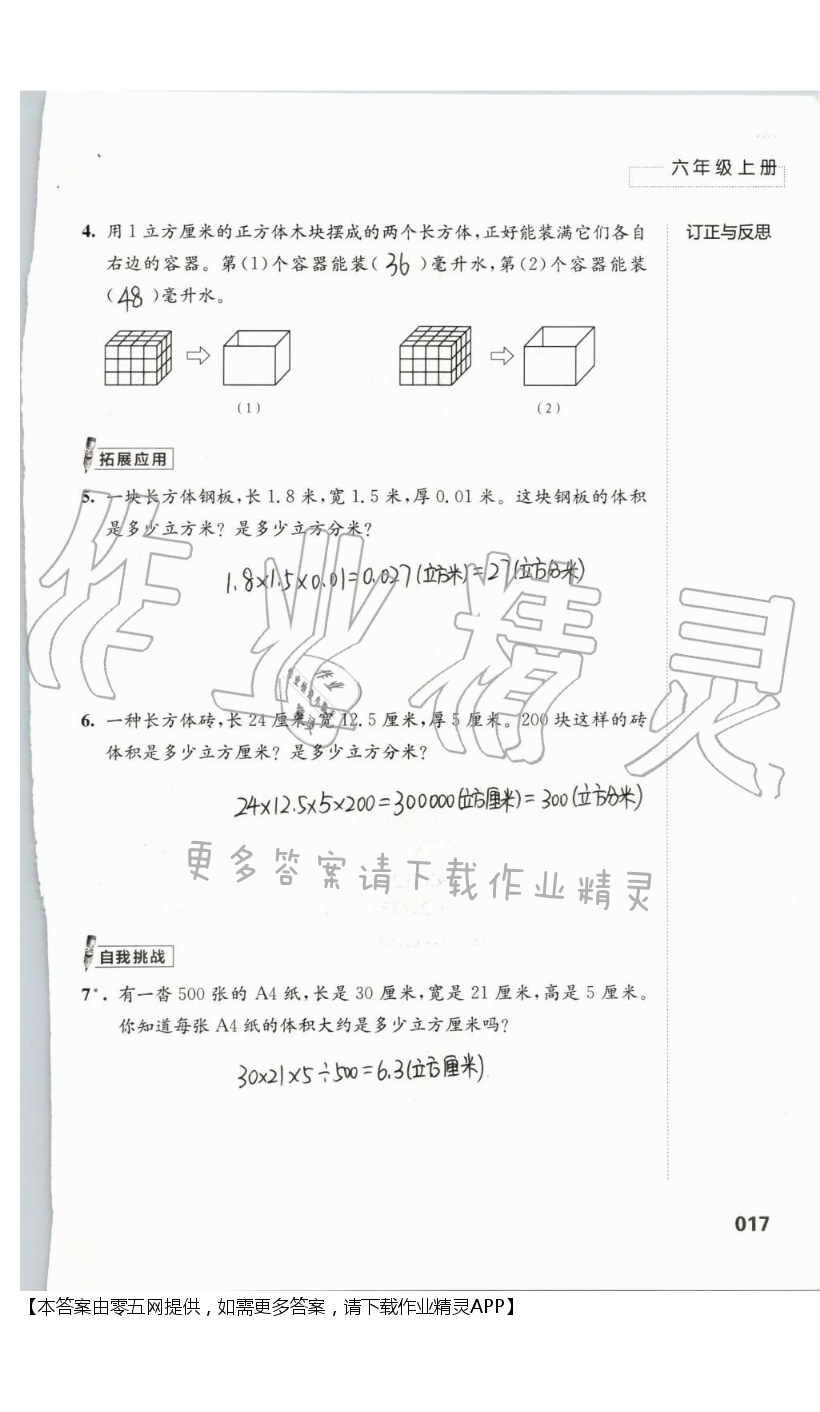 六年级上册
4. 用1立方厘米的正方体木块摆成的两个长方体,正好能装满它们各自
右边的容器。第(1)个容器能装( 36 )毫升水,第(2)个容器能装
( 48 )毫升水。
订正与反思
(1)
(2)
拓展应用
5. 一块长方体钢板,长1.8米,宽1.5米,厚0.01米。这块钢板的体积
是多少立方米?是多少立方分米?
1.8×1.5×0.01=0.027(立方米)=27(立方分米)
作业精灵
6. 一种长方体砖,长24厘米,宽12.5厘米,厚5厘米。200块这样的砖
体积是多少立方厘米?是多少立方分米?
24×12.5×5×200=300000(立方厘米)=300(立方分米)
更多答案请下载作业精灵
自我挑战
7*. 有一沓500张的A4纸,长是30厘米,宽是21厘米,高是5厘米。
你知道每张A4纸的体积大约是多少立方厘米吗?
30×21×5÷500=6.3(立方厘米)
017
【本答案由零五网提供,如需更多答案,请下载作业精灵APP】